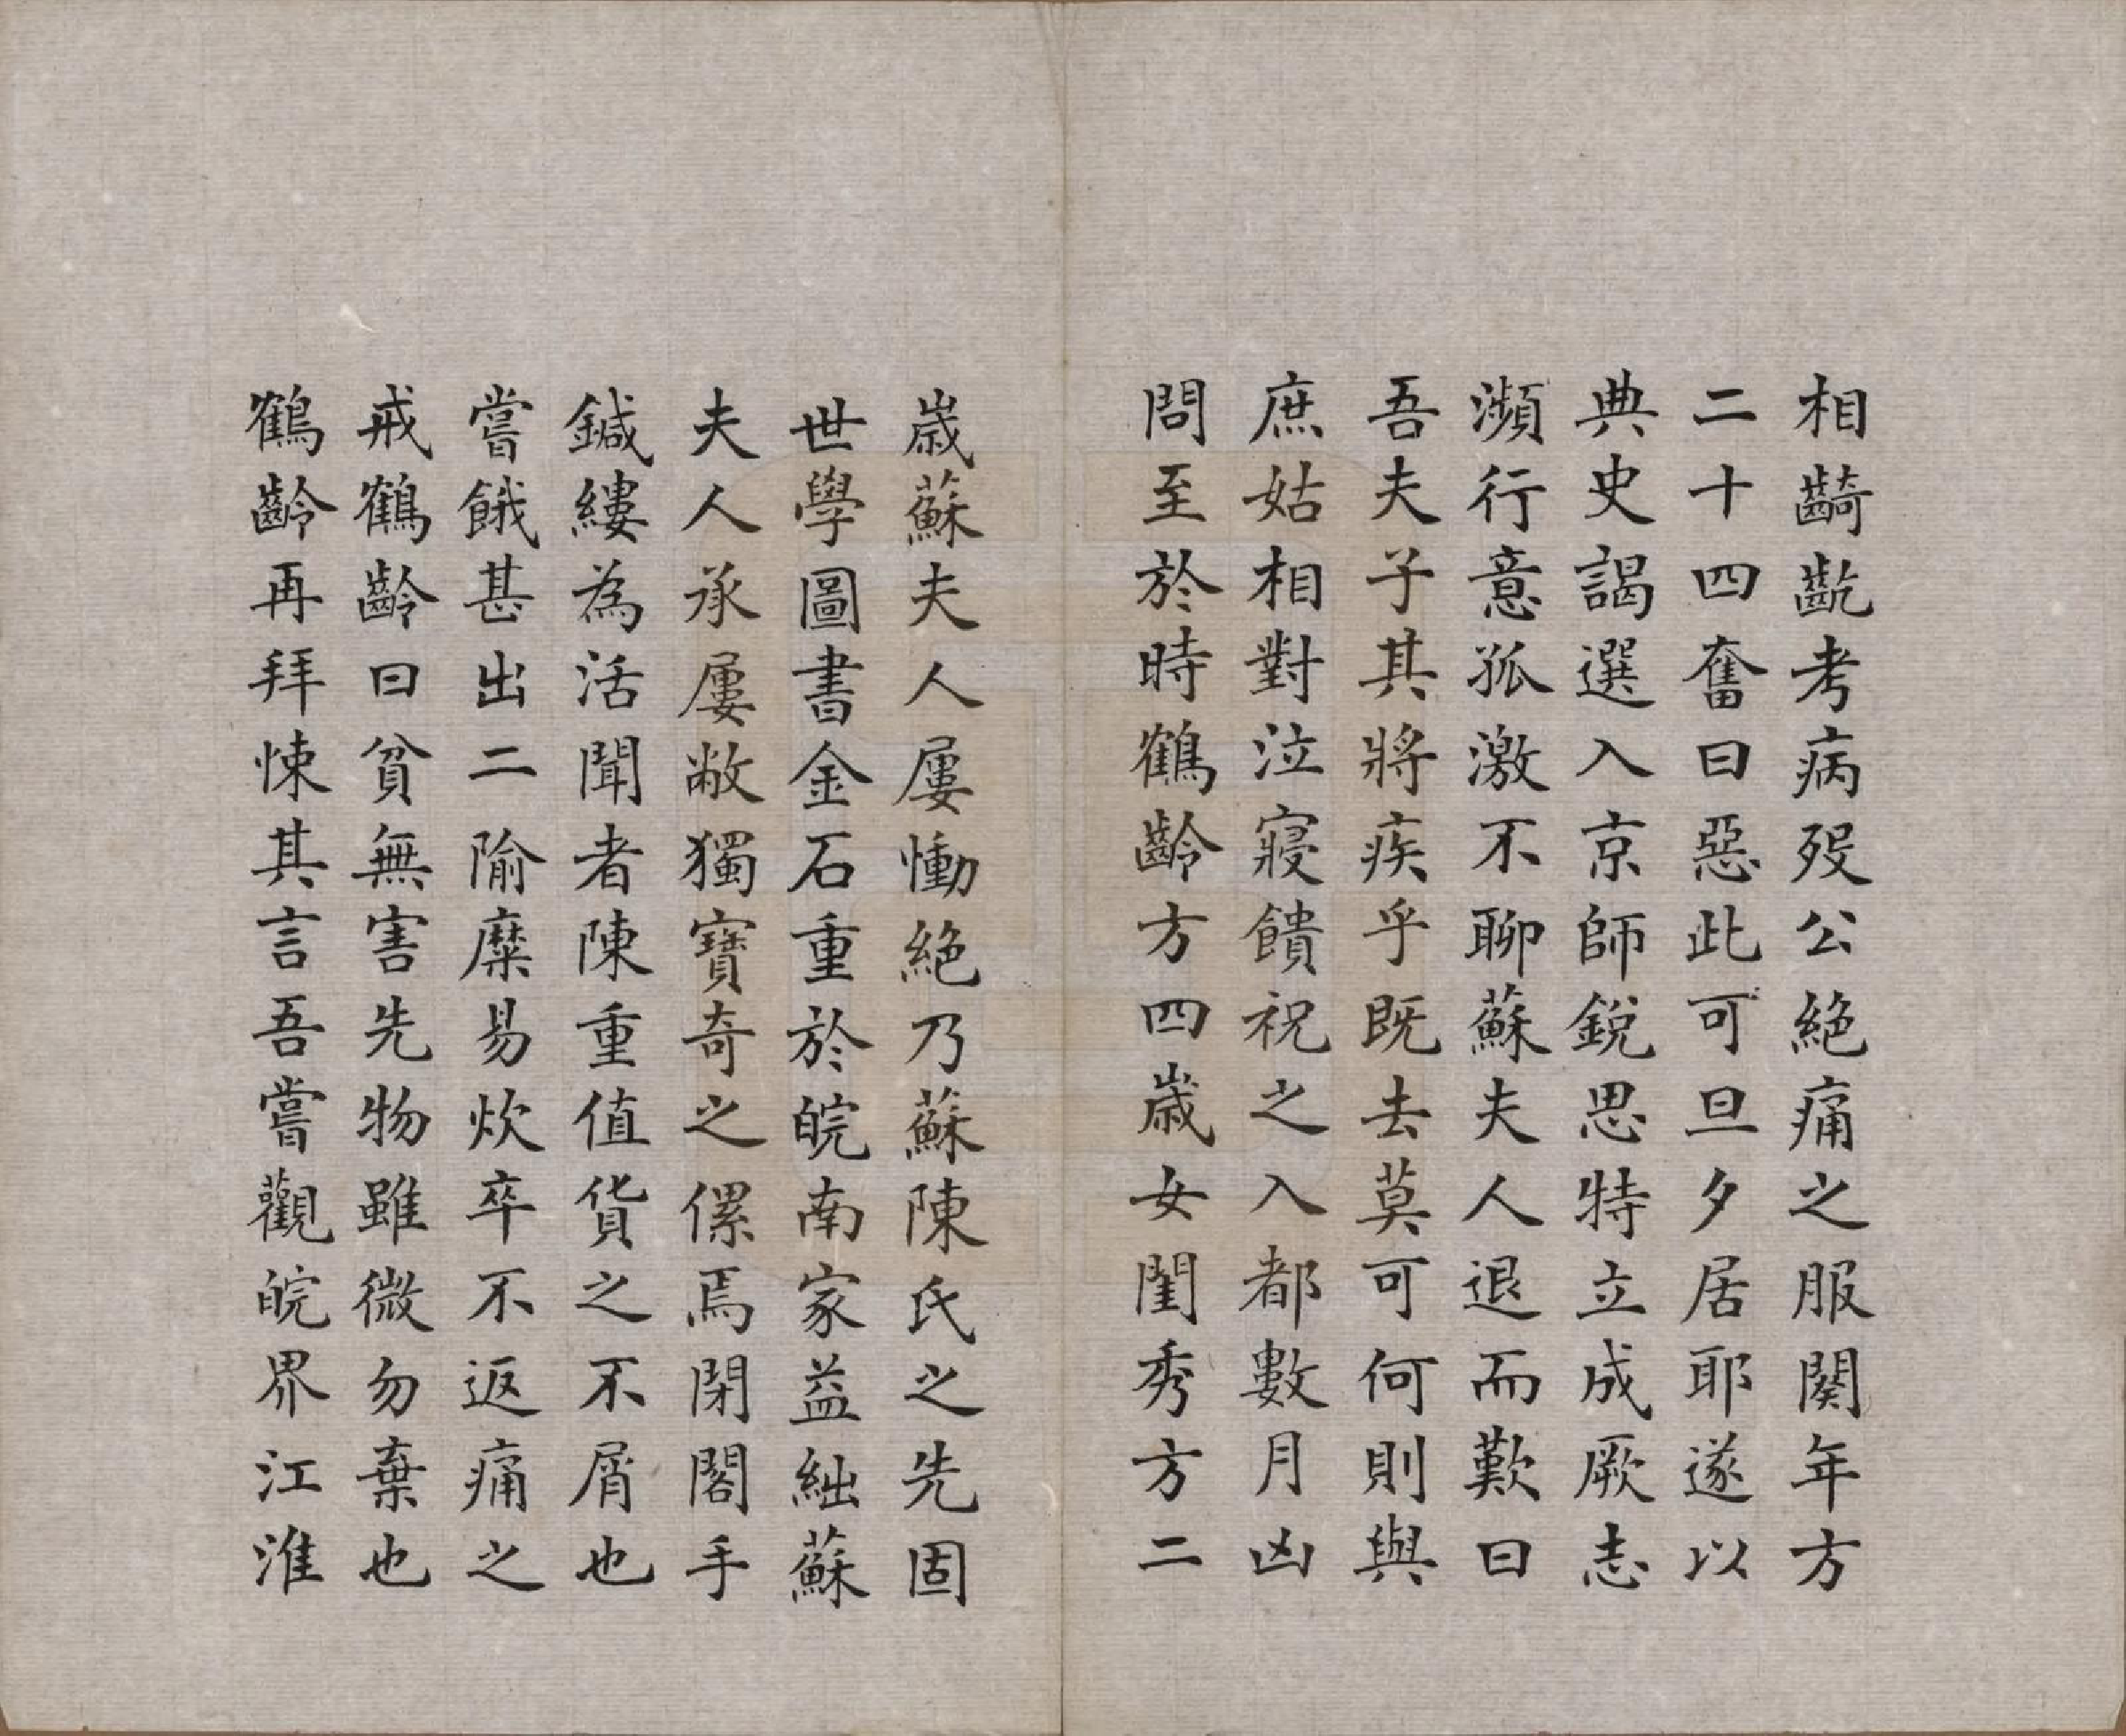 相齮齕考病歿公絕痛之服闋年方
二十四奮曰惡此可旦夕居耶遂以
典史謁選入京師銳思特立成厥志
瀕行意孤激不聊蘇夫人退而歎曰
吾夫子其將疾乎既去莫可何則與
庶姑相對泣寢饋祝之入都數月凶
問至於時鶴齡方四歲女閨秀方二
歲蘇夫人屢慟絕乃蘇陳氏之先固
世學圖書金石重於皖南家益絀蘇
夫人承屢敝獨寶奇之傫焉閉閣手
鍼縷為活聞者陳重值貨之不屑也
嘗餓甚出二隃糜易炊卒不返痛之
戒鶴齡曰貧無害先物雖微勿棄也
鶴齡再拜悚其言吾嘗觀皖界江淮